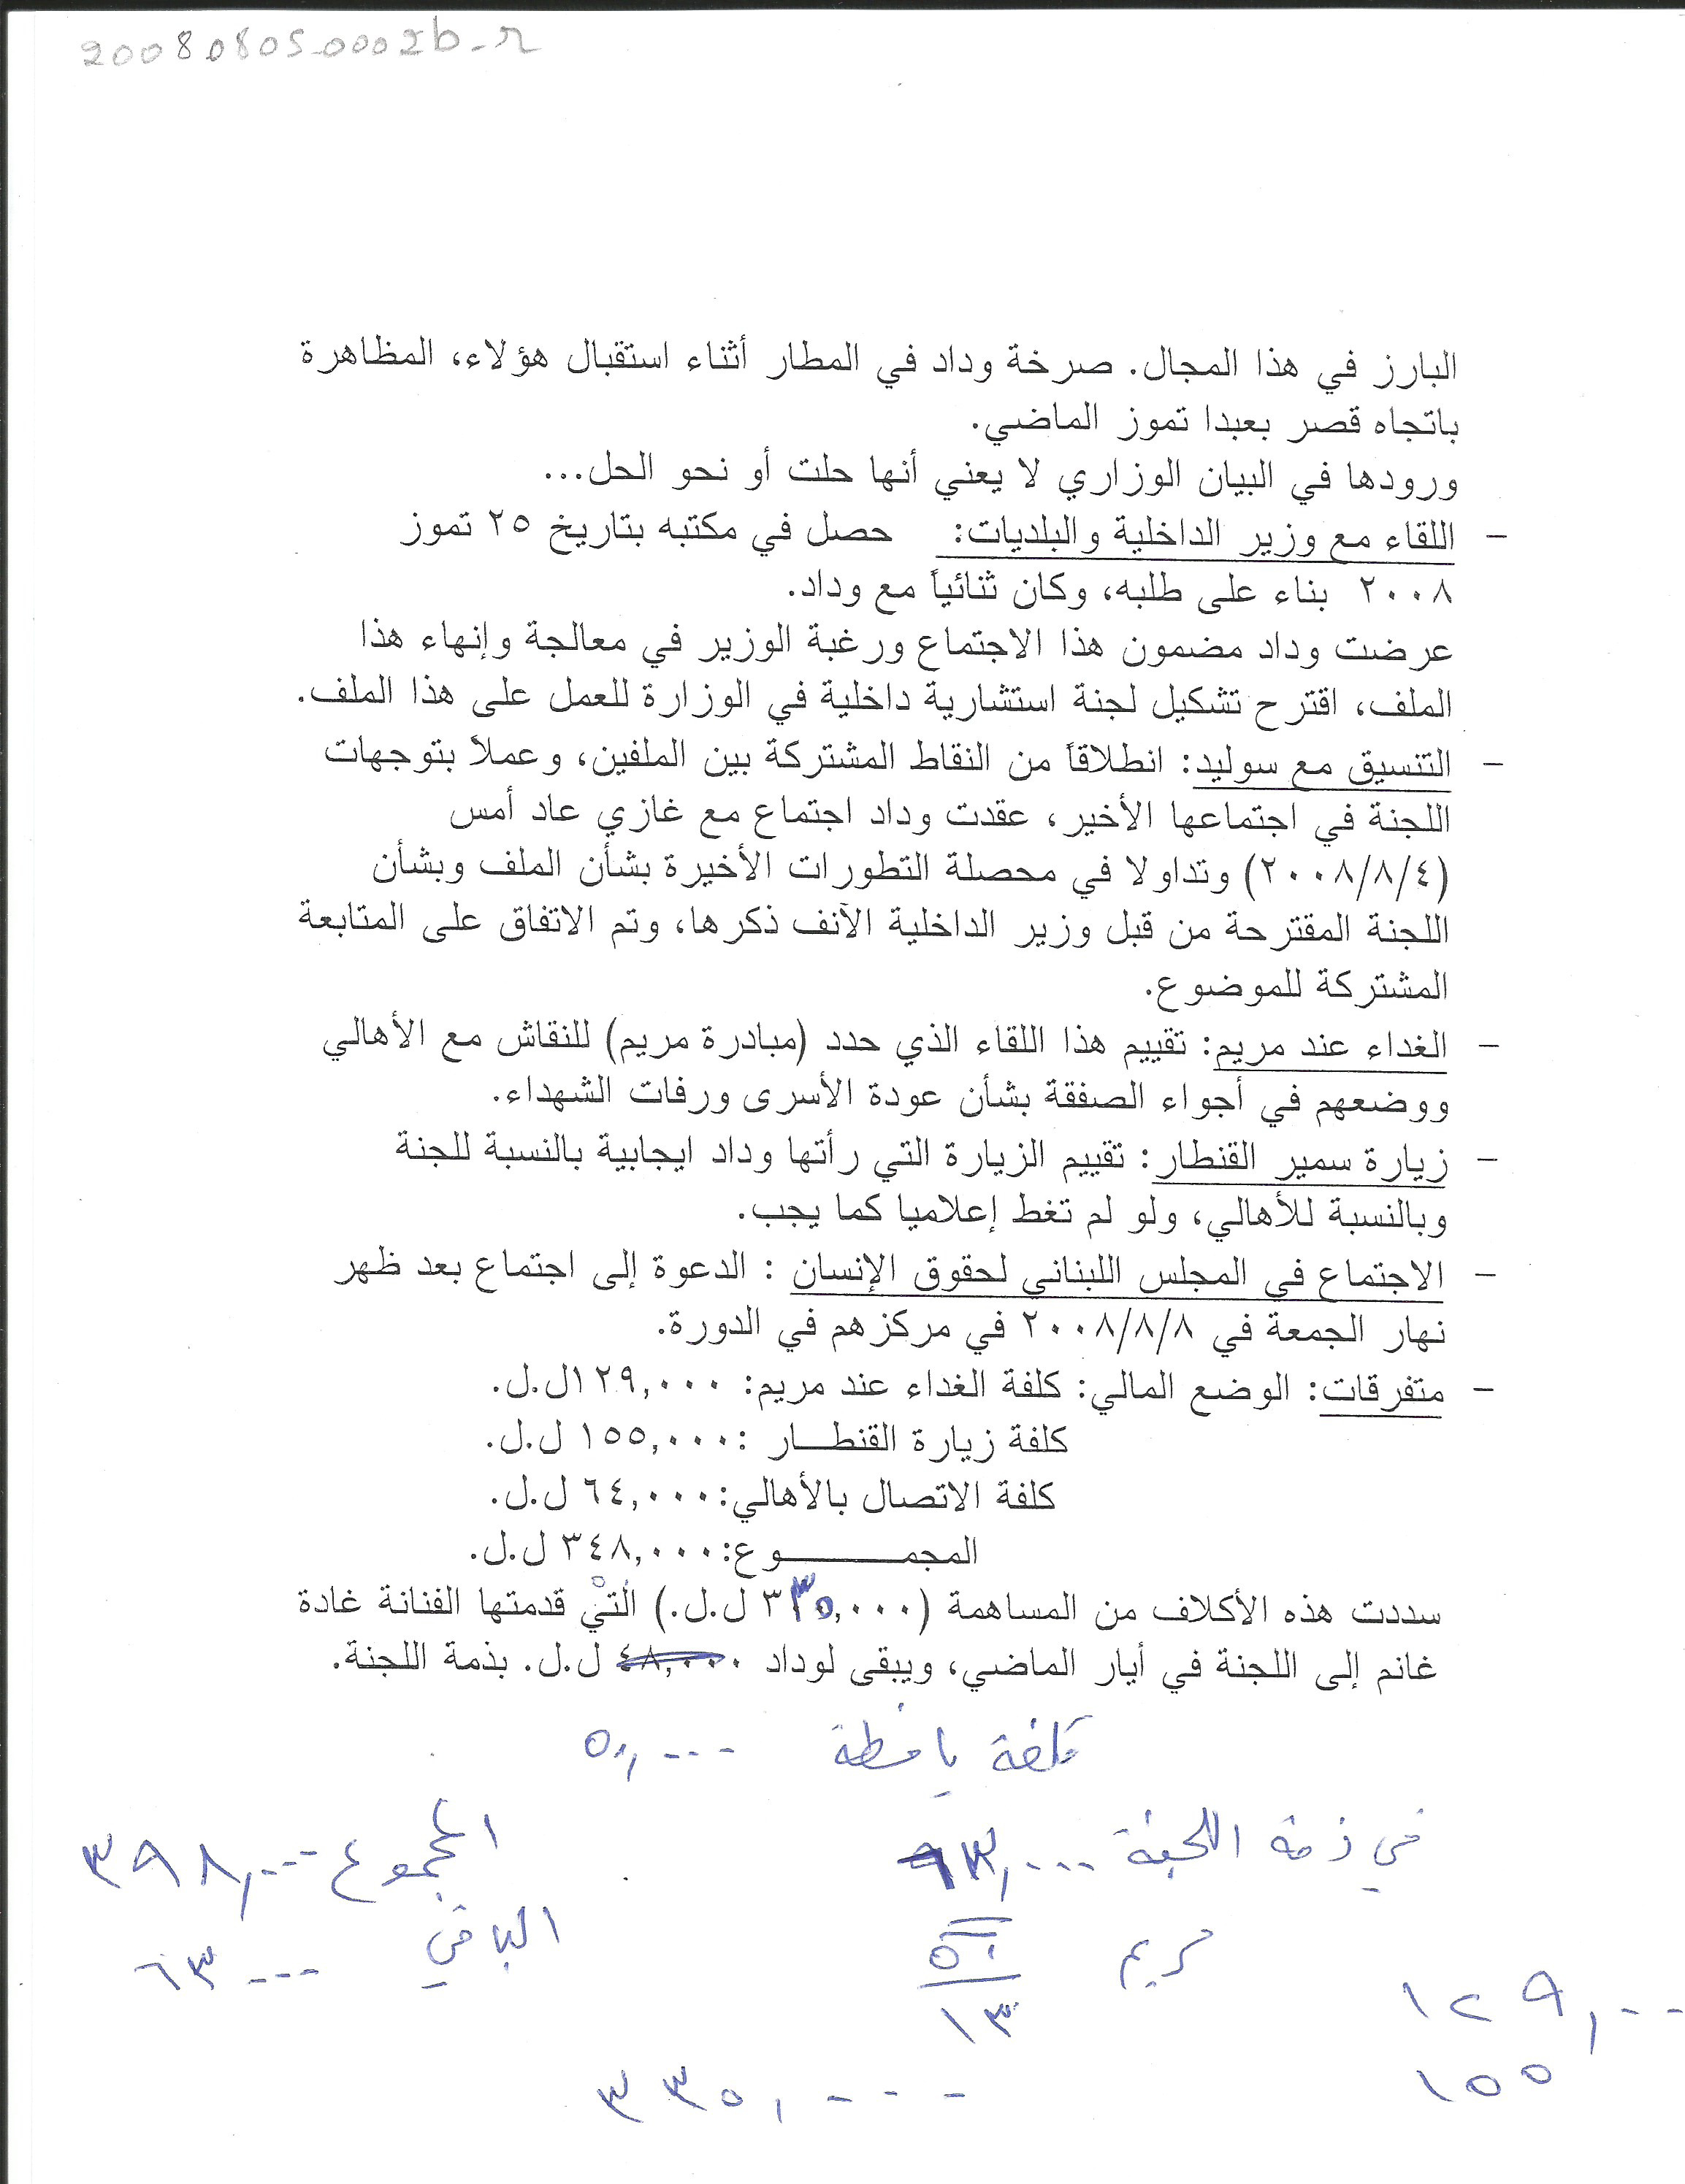 20080805_0002b_r
البارز في هذا المجال. صرخة وداد في المطار أثناء استقبال هؤلاء، المظاهرة
باتجاه قصر بعبدا تموز الماضي.
ورودها في البيان الوزاري لا يعني أنها حلت أو نحو الحل...
- اللقاء مع وزير الداخلية والبلديات: حصل في مكتبه بتاريخ ٢٥ تموز
٢٠٠٨ بناء على طلبه، وكان ثنائياً مع وداد.
عرضت وداد مضمون هذا الاجتماع ورغبة الوزير في معالجة وإنهاء هذا
الملف، اقترح تشكيل لجنة استشارية داخلية في الوزارة للعمل على هذا الملف.
- التنسيق مع سوليد: انطلاقاً من النقاط المشتركة بين الملفين، وعملاً بتوجهات
اللجنة في اجتماعها الأخير، عقدت وداد اجتماع مع غازي عاد أمس
(٢٠٠٨/٨/٤) وتداولا في محصلة التطورات الأخيرة بشأن الملف وبشأن
اللجنة المقترحة من قبل وزير الداخلية الآنف ذكرها، وتم الاتفاق على المتابعة
المشتركة للموضوع.
- الغداء عند مريم: تقييم هذا اللقاء الذي حدد (مبادرة مريم) للنقاش مع الأهالي
ووضعهم في أجواء الصفقة بشأن عودة الأسرى ورفات الشهداء.
- زيارة سمير القنطار: تقييم الزيارة التي رأتها وداد ايجابية بالنسبة للجنة
وبالنسبة للأهالي، ولو لم تغط إعلاميا كما يجب.
- الاجتماع في المجلس اللبناني لحقوق الإنسان : الدعوة إلى اجتماع بعد ظهر
نهار الجمعة في ٢٠٠٨/٨/٨ في مركزهم في الدورة.
- متفرقات: الوضع المالي: كلفة الغداء عند مريم: ١٢٩,٠٠٠ل.ل.
كلفة زيارة القنطـــار :١٥٥,٠٠٠ ل.ل.
كلفة الاتصال بالأهالي:٦٤,٠٠٠ ل.ل.
المجمــــــــوع:٣٤٨,٠٠٠ ل.ل.
سددت هذه الأكلاف من المساهمة (٣٣٥,٠٠٠ ل.ل.) التي قدمتها الفنانة غادة
غانم إلى اللجنة في أيار الماضي، ويبقى لوداد ٤٨,٠٠٠ ل.ل. بذمة اللجنة.
كلفة يافطة ٥٠,٠٠٠
في ذمة اللجنة ٦٣,٠٠٠
المجموع ٣٩٨,٠٠٠
مريم ٥٠
الباقي ٦٣٠٠٠
١٣
١٢٩,٠٠٠
١٥٥
٣٣٥,٠٠٠